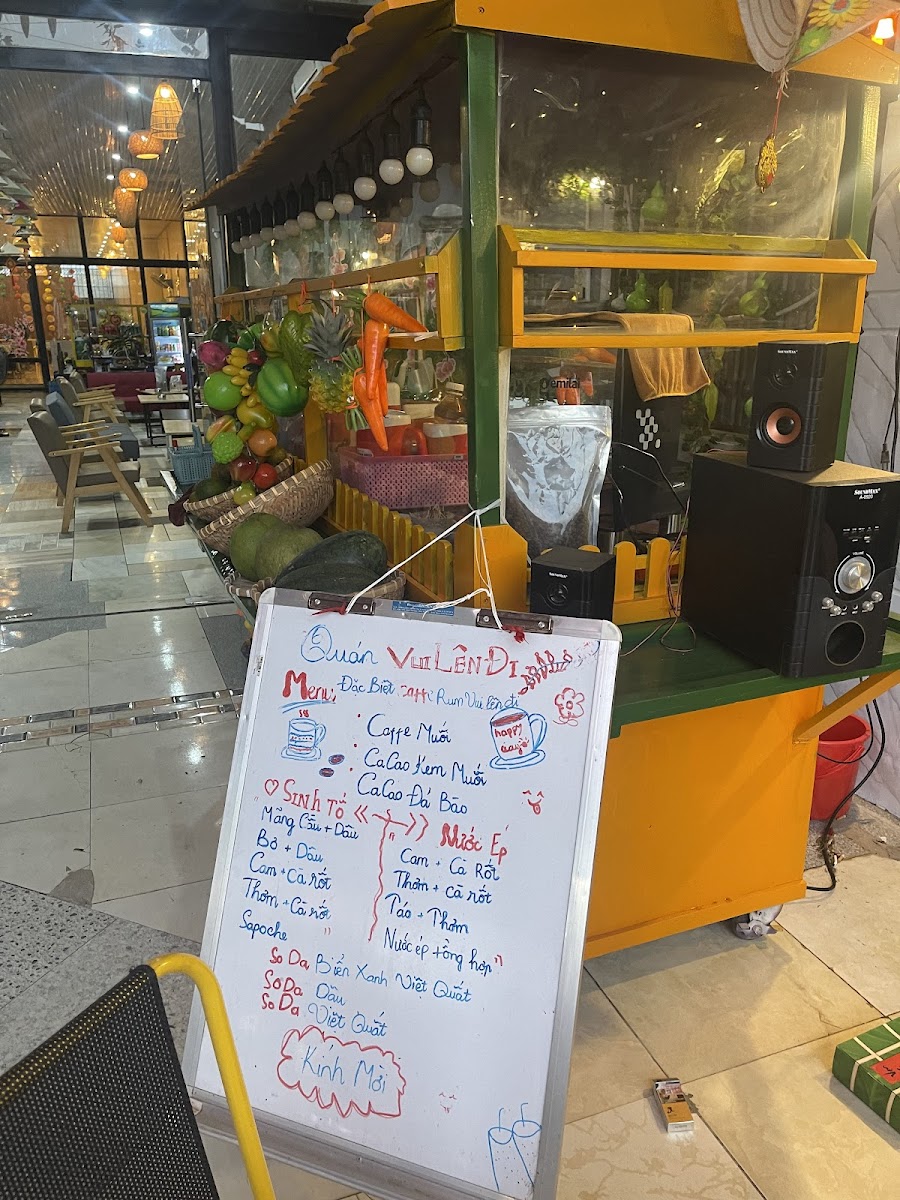 Quán Vui Lên Đi
Menu
Đặc Biệt Caffe Rum Vui Lên đi
Caffe Muối
CaCao Kem Muối
CaCao Đá Bào
happy
Sinh Tố
Mãng Cầu + Dâu
Bơ + Dâu
Cam + Cà rốt
Thơm + Cà rốt
Sapoche
Nước Ép
Cam + Cà Rốt
Thơm + cà rốt
Táo + Thơm
Nước ép tổng hợp
SoDa Biển Xanh Việt Quất
SoDa Dâu
SoDa Việt Quất
Kính Mời
SOUNDMAX
SOUNDMAX
VOLUME